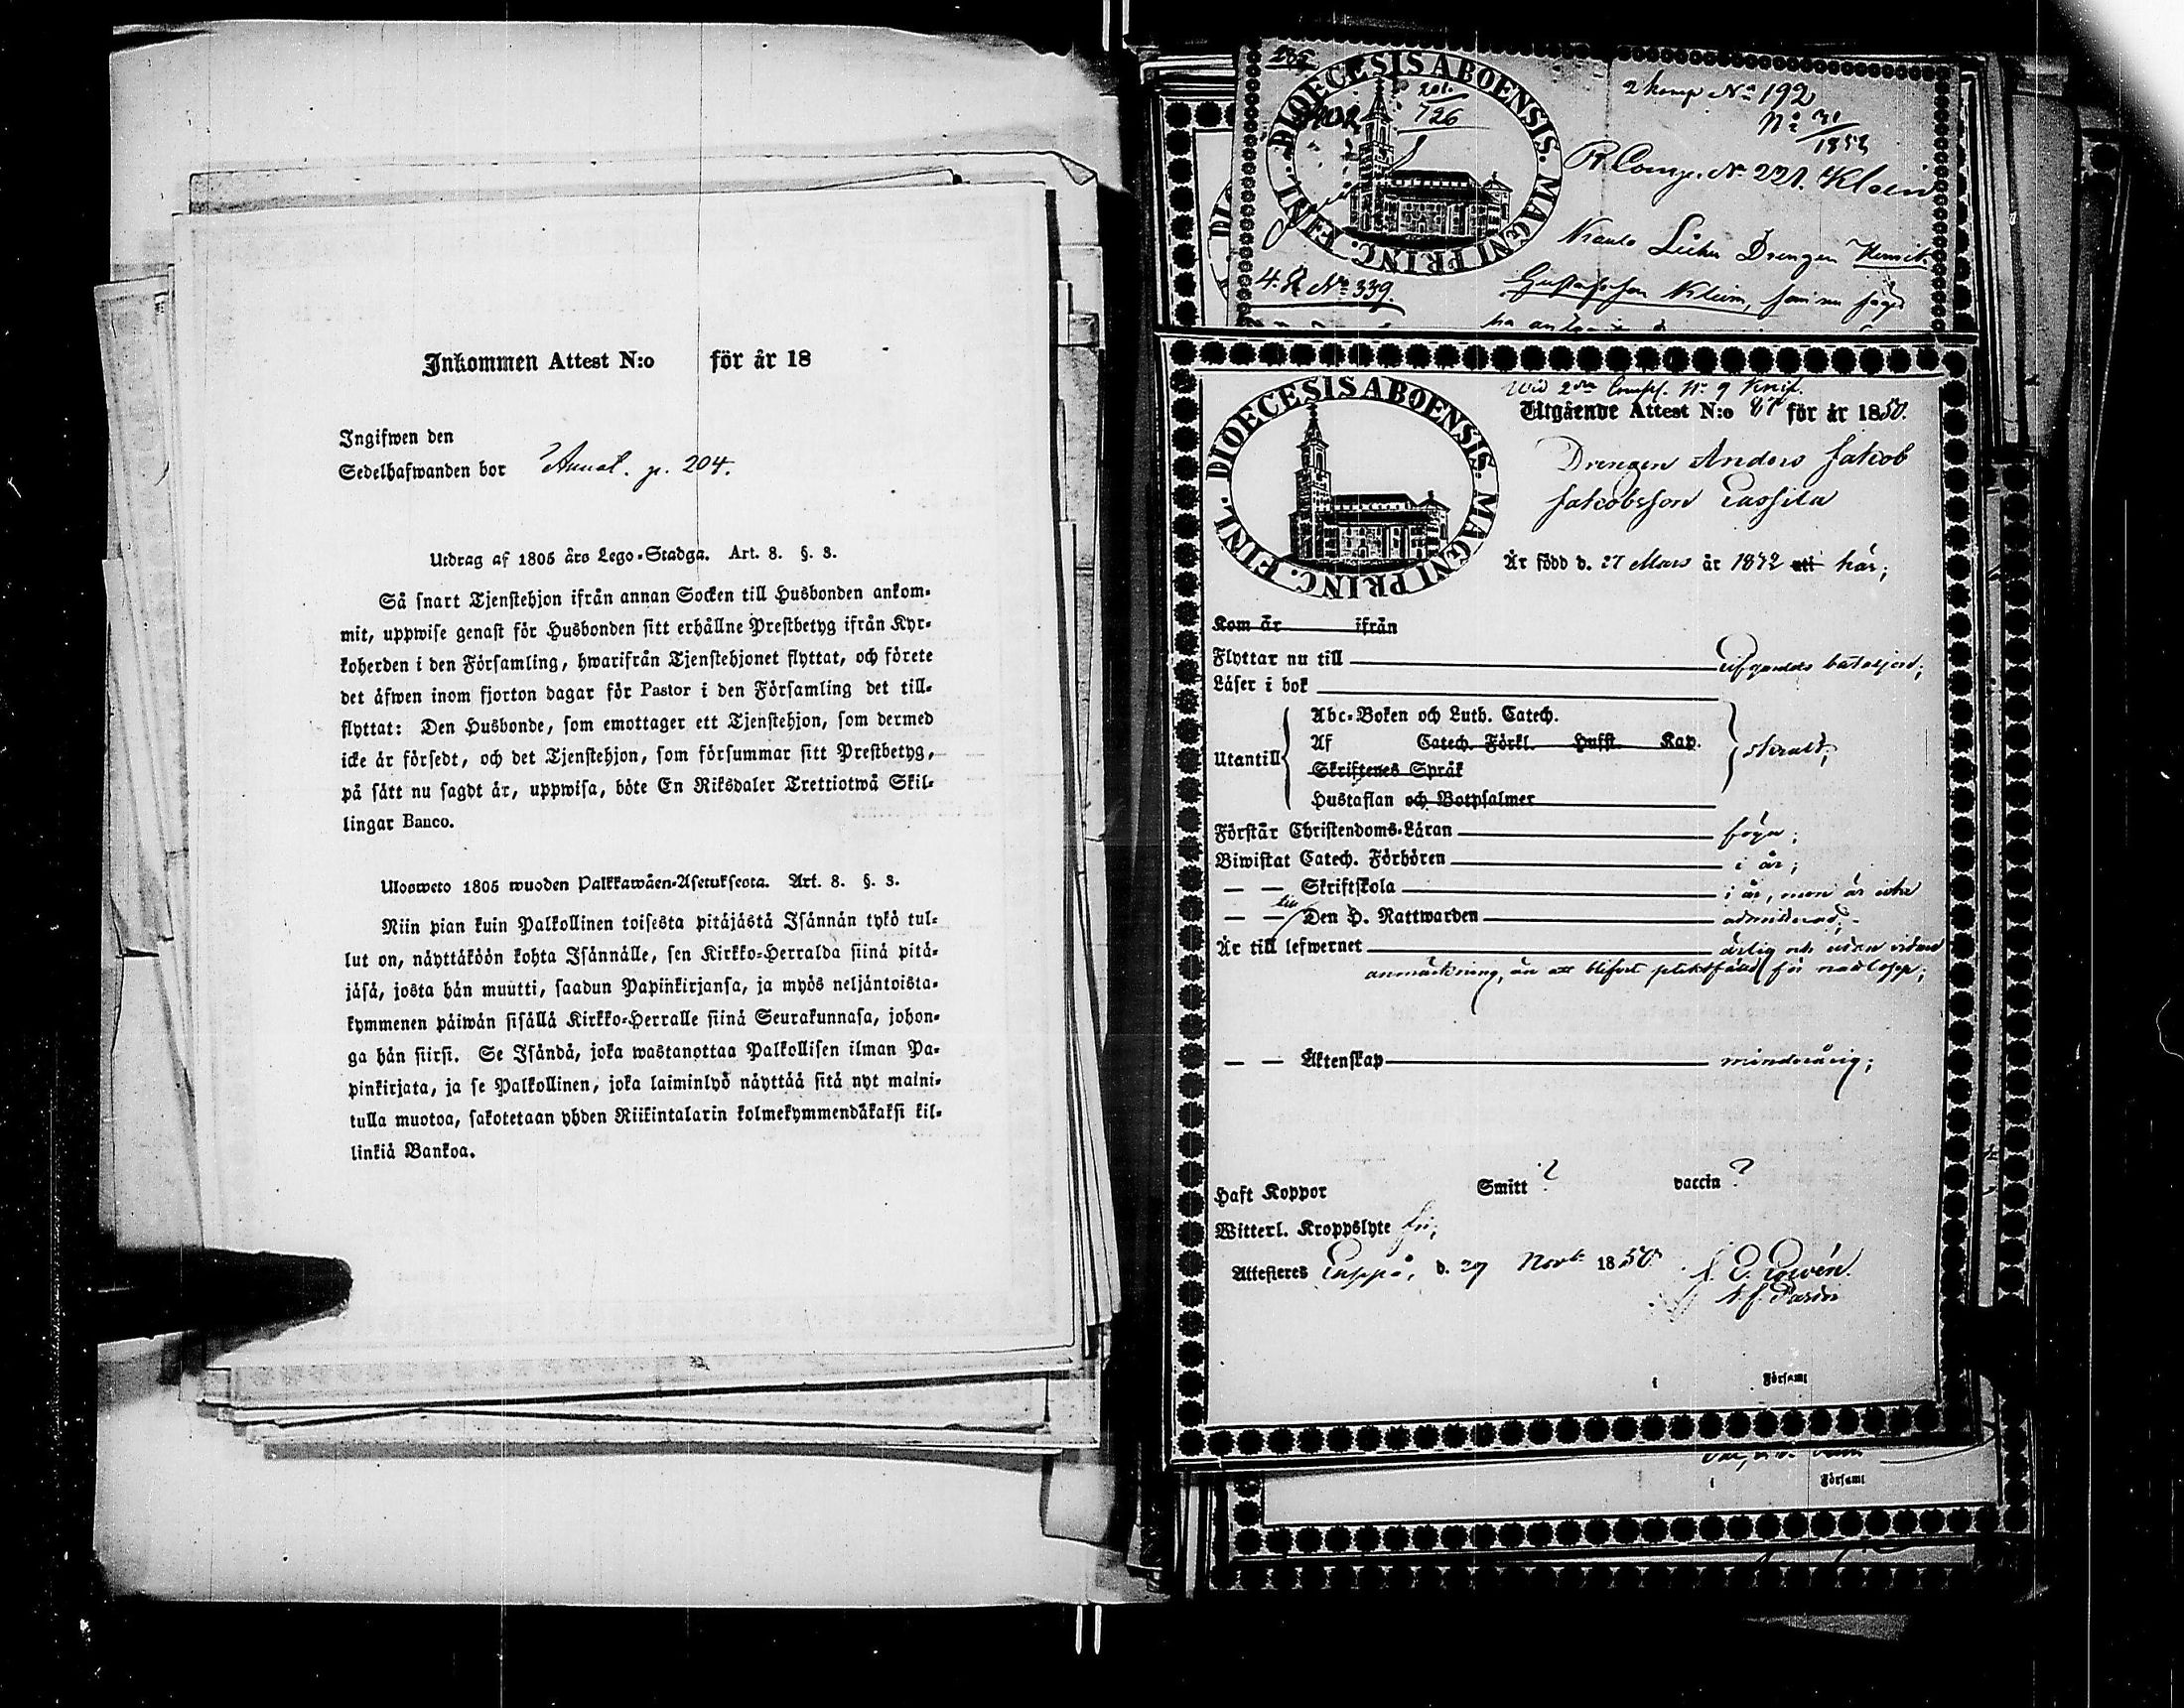 Inkommen Attest N:o för år 18
Ingifwen den
Sedelhafwanden bor Annot. p. 204.
Utdrag af 1805 års Lego-Stadga. Art. 8. §. 8.
Så snart Tjenstehjon ifrån annan Socken till Husbonden ankom-
mit, uppwise genast för Husbonden sitt erhållne Prestbetyg ifrån Kyr-
koherden i den Församling, hwarifrån Tjenstehjonet flyttat, och förete
det äfwen inom fjorton dagar för Pastor i den Församling det till-
flyttat: Den Husbonde, som emottager ett Tjenstehjon, som dermed
icke är försedt, och det Tjenstehjon, som försummar sitt Prestbetyg,
på sätt nu sagdt är, uppwisa, böte En Riksdaler Trettiotwå Skil-
lingar Banco.
Uloosweto 1805 wuoden Palkkawäen-Asetuksesta. Art. 8. §. 8.
Niin pian kuin Palkollinen toisesta pitäjästä Isännän tykö tul-
lut on, näyttäköön kohta Isännälle, sen Kirkko-Herralda siinä pitä-
jäsä, josta hän muutti, saadun Papinkirjansa, ja myös neljäntoista-
kymmenen päiwän sisällä Kirkko-Herralle siinä Seurakunnasa, johon-
ga hän siirsi. Se Isändä, joka wastanottaa Palkollisen ilman Pa-
pinkirjata, ja se Palkollinen, joka laiminlyö näyttää sitä nyt maini-
tulla muotoa, sakotetaan yhden Riikintalarin kolmekymmendäkaksi kil-
linkiä Bankoa.
206
201.
726
DIOECESIS ABOENSIS. MAGNI PRINC. FINL.
2 komp No 192
No 31/1853
R. Comp. No 221. Klein
Drengen Henrik
Gustafsson Klein, som nu säges
4. R No 339.
DIOECESIS ABOENSIS. MAGNI PRINC. FINL.
Wid 2dra Comp. No 9 Knif.
Utgående Attest N:o 67 för år 1850.
Drengen Anders Jakob
Jakobsson Cassila
Är född d. 27 Mars år 1832 att här;
Kom år ifrån
Flyttar nu till Lifgardes bataljon;
Läser i bok
Abc-Boken och Luth. Catech.
Utantill Af Catech. Förkl. Hufst. Kap. skralt;
Skriftenes Språk
Hustaflan och Botpsalmer
Förstår Christendoms-Läran föga;
Biwistat Catech. Förhören i år;
— — Skriftskola i år, men är icke
— — till Den H. Nattwarden admitterad;
Är till lefwernet ärlig och utan vidare
anmärkning, än att blifvit pliktfälld för
— — Äktenskap minderårig;
Haft Koppor Smitt ? vaccin ?
Witterl. Kroppslyte fri;
Attesteres d. 29 Novb 1850.
i Församl
i Församl